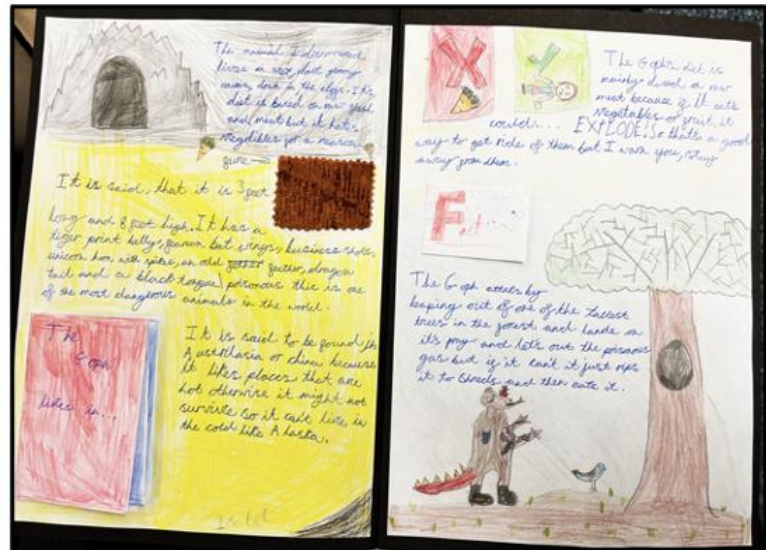 The animal I discovered
lives in dark gloomy
caves, down in the
diet is based on raw flesh
and meat but it hates
vegetables for a reason
It is said, that it is 3 feet
long and 8 feet high. It has a
tiger print belly, bat wings, business shoes,
unicorn horn with spikes, an old feather, dragon
tail and a black tongue, poisonous this is one
of the most dangerous animals in the world.
It is said to be found in
Australasia or china because
it likes places that are
hot otherwise it might not
survive so it can't live in
the cold like Alaska.
The
Goph
lives in...
X
X
The Goph's diet is
mainly based on raw
meat because if it eats
vegetables or fruit, it
could.... EXPLODE! So that's a good
way to get rides of them but I warn you, stay
away from them.
The Goph attacks by
leaping out of one of the tallest
trees in the forest and lands on
it's pray and let's out the poisonous
gas but if it can't it just rips
it to shreds and then eats it.